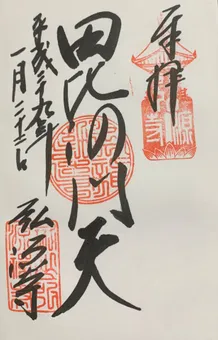 奉拝
毘沙門天
弘源寺
平成二十九年
一月二十二日